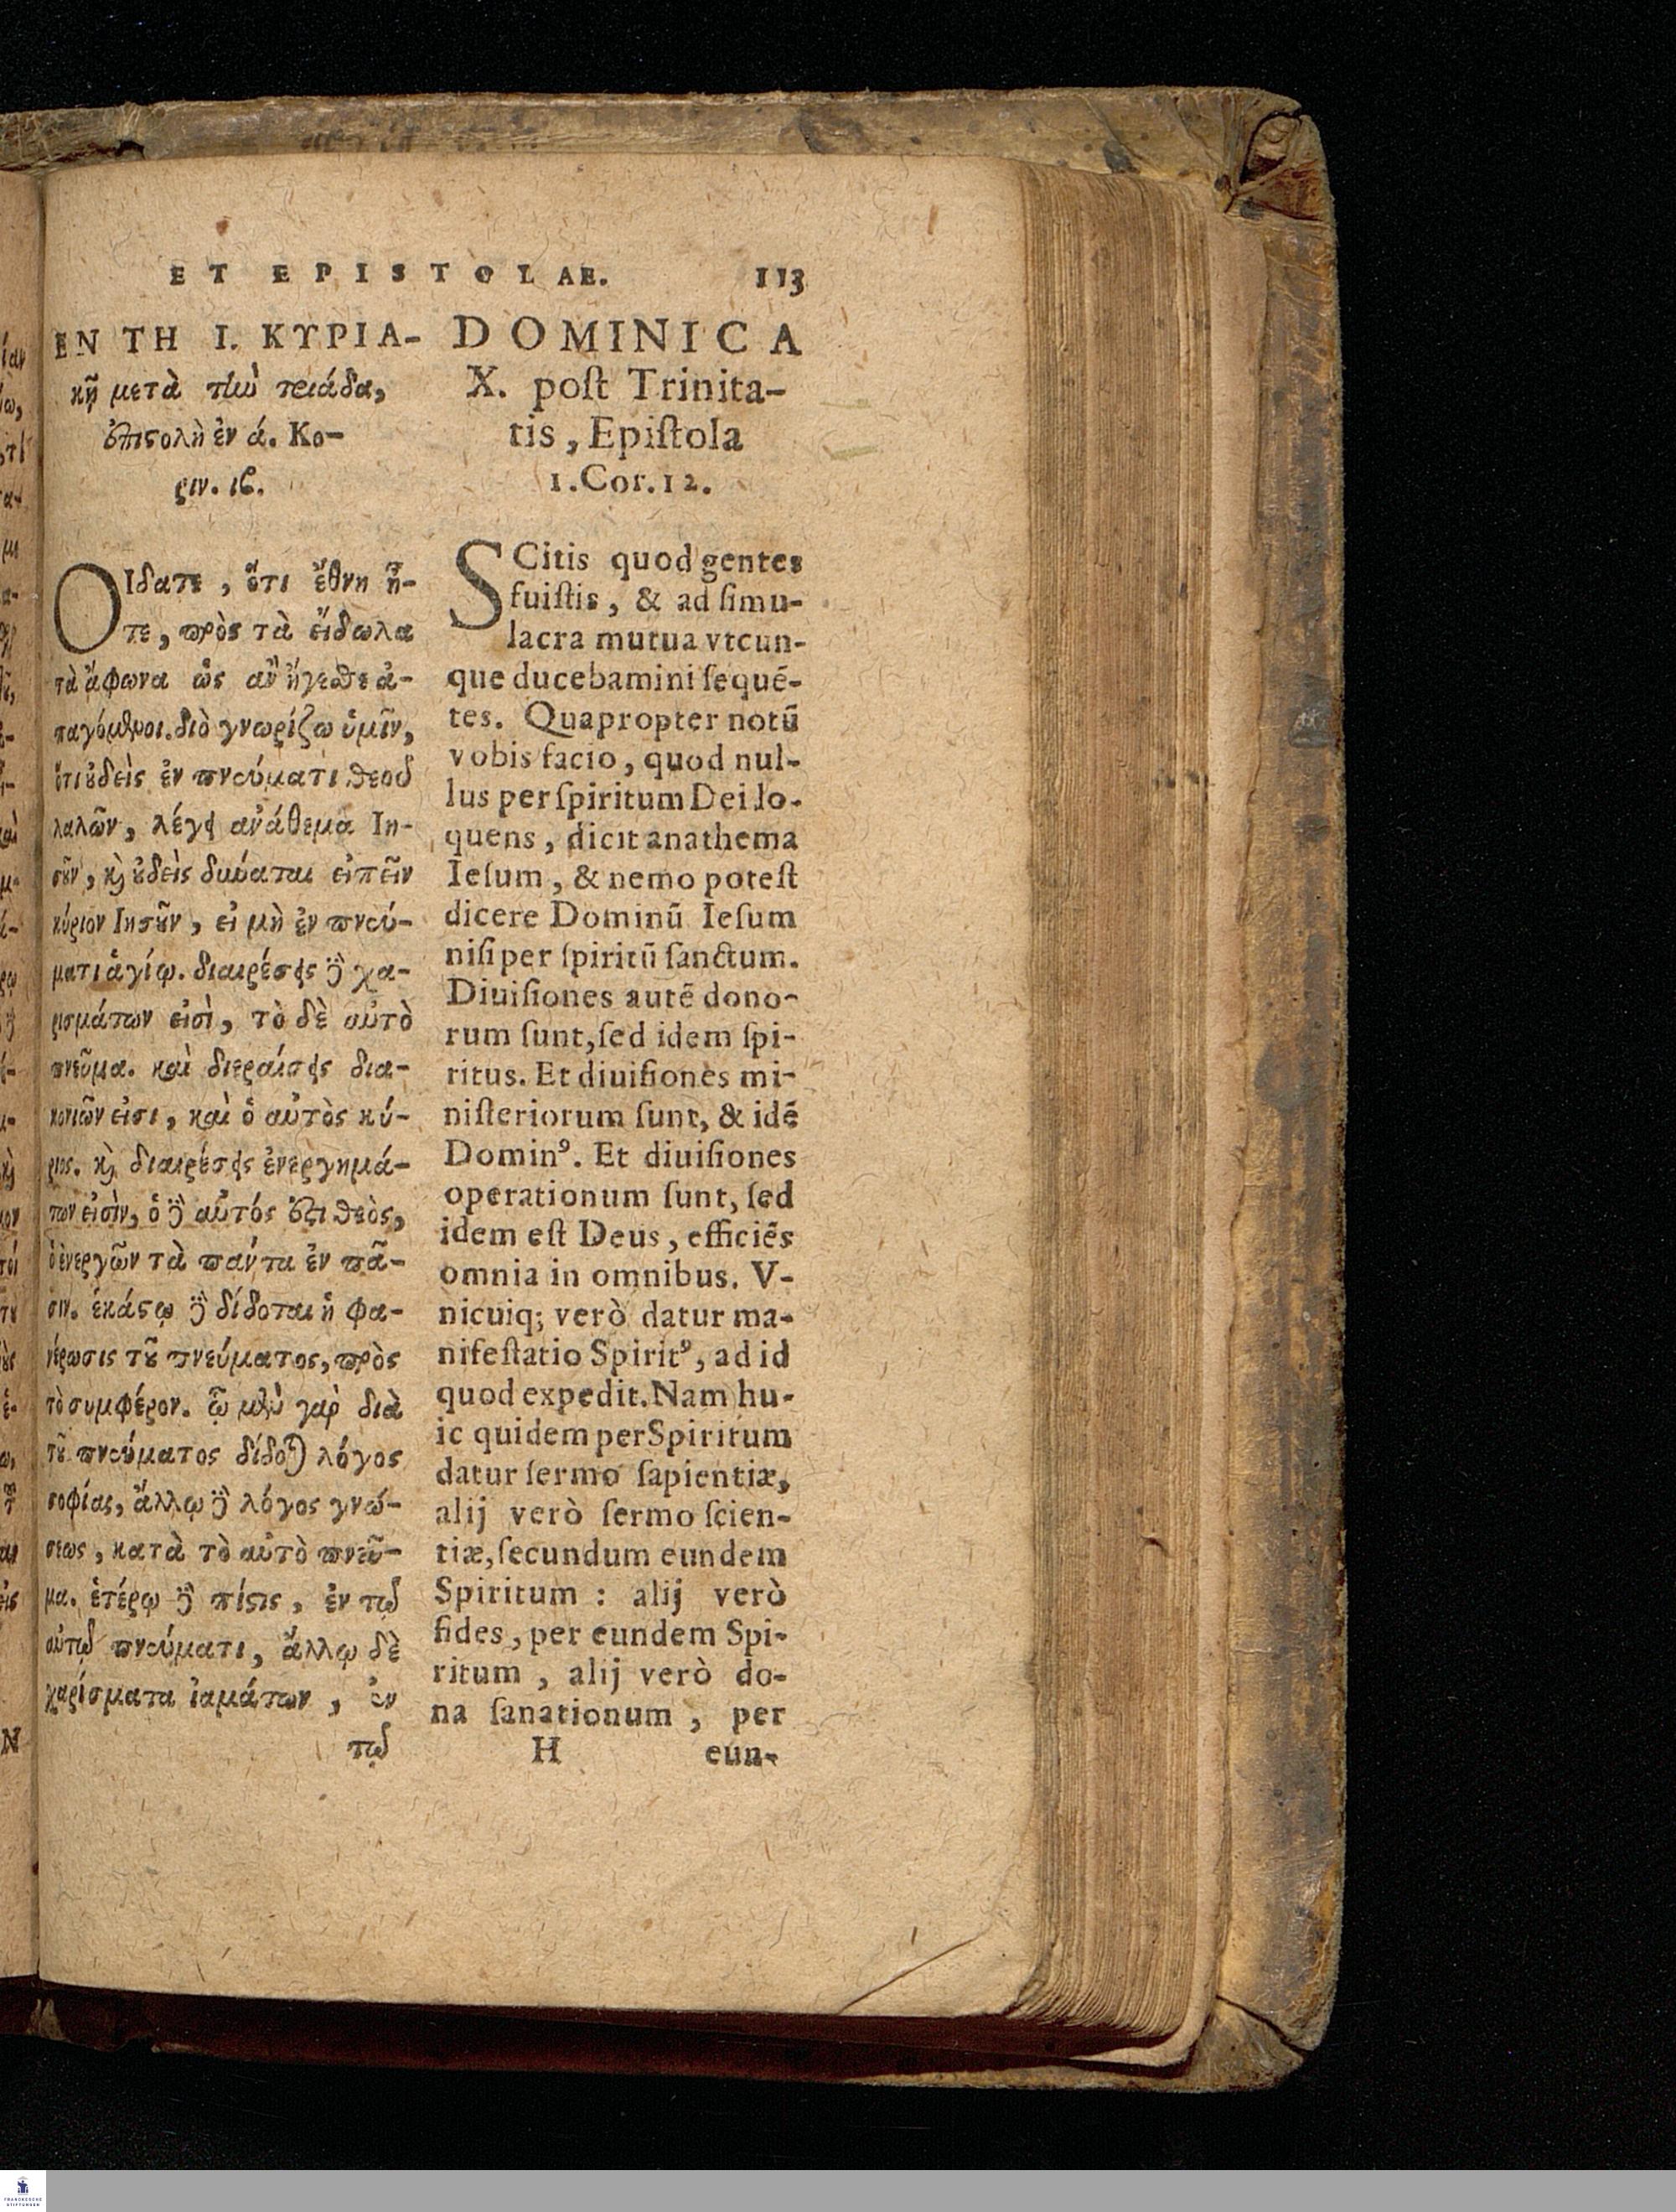 ET EPISTOLAE. 113
ΕΝ ΤΗ Ι. ΚΥΡΙΑ-
κῇ μετὰ τὴν τριάδα,
ἐπιστολὴ ἐν ά. Κο-
ριν. ιβ.
ΟΙδατε, ὅτι ἔθνη ἦ-
τε, πρὸς τὰ εἴδωλα
τὰ ἄφωνα ὡς ἂν ἤγεσθε ἀ-
παγόμενοι. διὸ γνωρίζω ὑμῖν,
ὅτι οὐδεὶς ἐν πνεύματι θεοῦ
λαλῶν, λέγει ἀνάθεμα Ιη-
σοῦν, καὶ οὐδεὶς δύναται εἰπεῖν
κύριον Ιησοῦν, εἰ μὴ ἐν πνεύ-
ματι ἁγίῳ. διαιρέσεις δὲ χα-
ρισμάτων εἰσὶ, τὸ δὲ αὐτὸ
πνεῦμα. καὶ διεραίσεις δια-
κονιῶν εἰσι, καὶ ὁ αὐτὸς κύ-
ριος. καὶ διαιρέσεις ἐνεργημά-
των εἰσὶν, ὁ δὲ αὐτός ἐστι θεὸς,
ὁ ἐνεργῶν τὰ πάντα ἐν πᾶ-
σιν. ἑκάστῳ δὲ δίδοται ἡ φα-
νέρωσις τοῦ πνεύματος, πρὸς
τὸ συμφέρον. ᾧ μὲν γὰρ διὰ
τοῦ πνεύματος δίδοται λόγος
σοφίας, ἄλλῳ δὲ λόγος γνώ-
σεως, κατὰ τὸ αὐτὸ πνεῦ-
μα. ἑτέρῳ δὲ πίστις, ἐν τῷ
αὐτῷ πνεύματι, ἄλλῳ δὲ
χαρίσματα ἰαμάτων, ἐν
τῷ
DOMINICA
X. poſt Trinita-
tis, Epiſtola
1. Cor. 12.
SCitis quod gentes
fuiſtis, & ad ſimu-
lacra mutua vtcun-
que ducebamini ſequē-
tes. Quapropter notū
vobis facio, quod nul-
lus per ſpiritum Dei lo-
quens, dicit anathema
Ieſum, & nemo poteſt
dicere Dominū Ieſum
niſi per ſpiritū ſanctum.
Diuiſiones autē dono-
rum ſunt, ſed idem ſpi-
ritus. Et diuiſiones mi-
niſteriorum ſunt, & idē
Domin⁹. Et diuiſiones
operationum ſunt, ſed
idem eſt Deus, efficiēs
omnia in omnibus. V-
nicuiq; verò datur ma-
nifeſtatio Spirit⁹, ad id
quod expedit. Nam hu-
ic quidem per Spiritum
datur ſermo ſapientiæ,
alij verò ſermo ſcien-
tiæ, ſecundum eundem
Spiritum : alij verò
fides, per eundem Spi-
ritum, alij verò do-
na ſanationum, per
H eun-
FRANCKESCHE
STIFTUNGEN